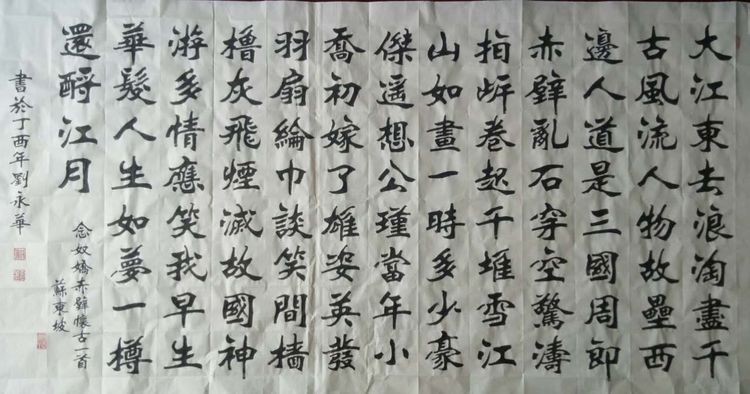 大江東去浪淘盡千
古風流人物故壘西
邊人道是三國周郎
赤壁亂石穿空驚濤
拍岸卷起千堆雪江
山如畫一時多少豪
傑遥想公瑾當年小
喬初嫁了雄姿英發
羽扇綸巾談笑間檣
櫓灰飛煙滅故國神
游多情應笑我早生
華髮人生如夢一樽
還酹江月
念奴嬌赤壁懷古一首
蘇東坡
書於丁酉年劉永華